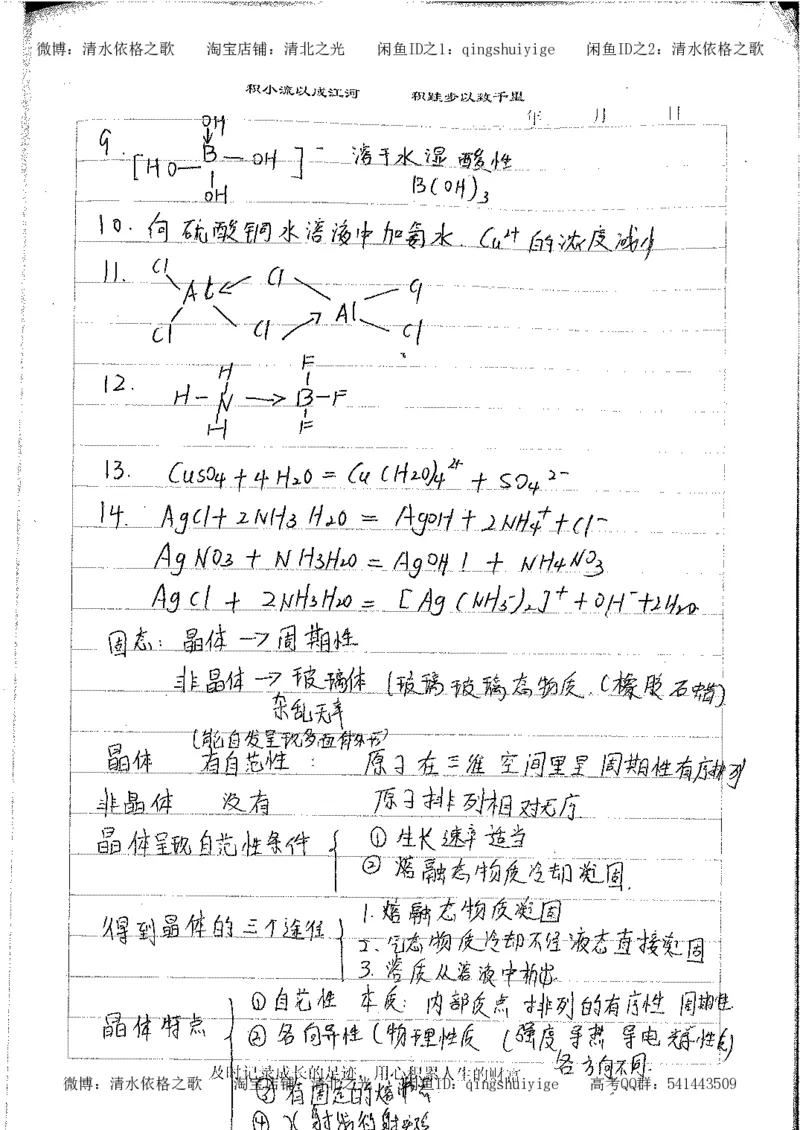 微博：清水依格之歌 淘宝店铺：清北之光 闲鱼ID之1：qingshuiyige 闲鱼ID之2：清水依格之歌
积小流以成江河 积跬步以致千里
年 月 日
9. [HO—B(OH)(OH)—OH]⁻ 溶于水湿酸性
B(OH)₃
10. 向硫酸铜水溶液中加氨水. Cu²⁺的浓度减少
11. Cl Al Cl Al Cl
Cl Cl Cl
12. H F
H—N→B—F
H F
13. CuSO4 + 4H2O = Cu(H2O)4²⁺ + SO4²⁻
14. AgCl + 2NH3 H2O = AgOH + 2NH4⁺ + Cl⁻
AgNO3 + NH3H2O = AgOH↓ + NH4NO3
AgCl + 2NH3H2O = [Ag(NH3)2]⁺ + OH⁻ + 2H2O
固态：晶体 → 周期性
非晶体 → 玻璃体 (玻璃 玻璃态物质.(橡胶 石蜡)
杂乱无章
(能自发呈现多面体外形)
晶体 有自范性： 原子在三维空间里呈周期性有序排列
非晶体 没有 原子排列相对无序
晶体呈现自范性条件 ①生长速率适当
②熔融态物质冷却凝固.
得到晶体的三个途径 1.熔融态物质凝固
2.气态物质冷却不经液态直接凝固
3.溶质从溶液中析出
晶体特点 ①自范性 本质：内部质点排列的有序性 周期性
②各向异性(物理性质 (强度 导热 导电 光学性质)
各方向不同.
及时记录成长的足迹，用心积累人生的财富
微博：清水依格之歌 淘宝店铺：清北之光 闲鱼ID：qingshuiyige 高考QQ群：541443509
③有固定的熔沸点
④X射线衍射实验